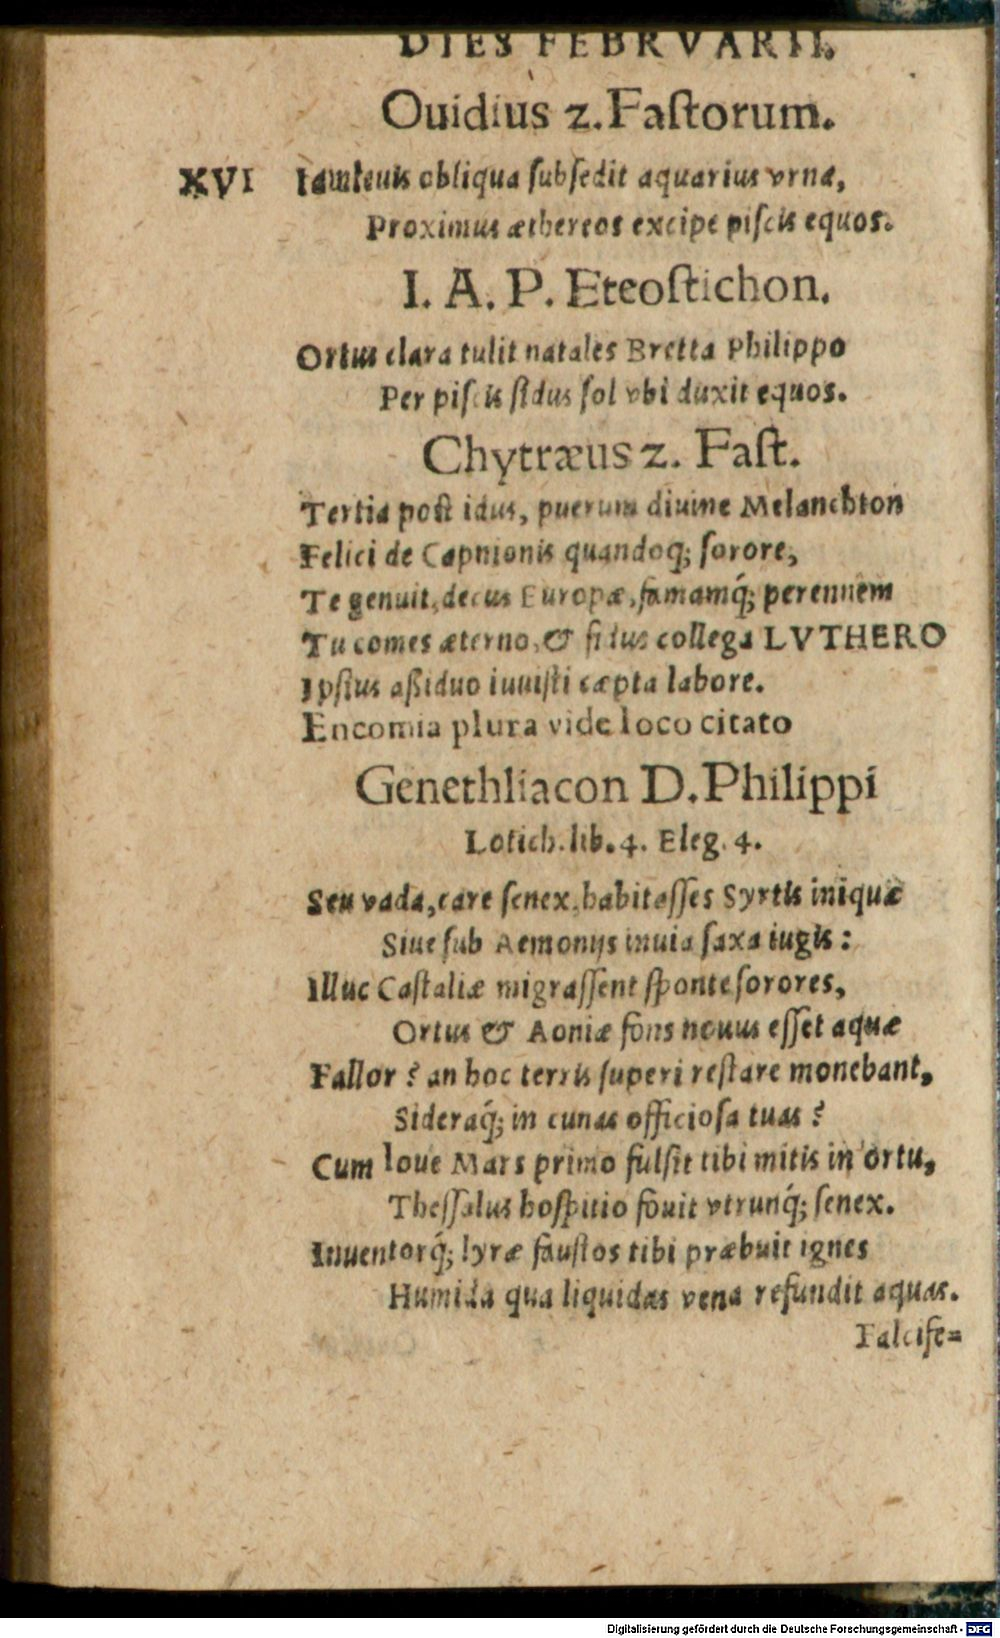 DIES FEBRVARII.
Ouidius 2. Faſtorum.
XVI Iam leuis obliqua ſubſedit aquarius vrna,
Proximus æthereos excipe piſcis equos.
I. A. P. Eteoſtichon.
Ortus clara tulit natales Bretta Philippo
Per piſcis ſidus ſol vbi duxit equos.
Chytræus 2. Faſt.
Tertia poſt idus, puerum diuine Melanchton
Felici de Capnionis quandoq; ſorore,
Te genuit, decus Europæ, famamq́; perennem
Tu comes æterno, & fidus collega LVTHERO
Ipſius aßiduo iuuiſti cæpta labore.
Encomia plura vide loco citato
Genethliacon D. Philippi
Lotich. lib. 4. Eleg. 4.
Seu vada, care ſenex, habitaſſes Syrtis iniquæ
Siue ſub Aemonijs inuia ſaxa iugis:
Illuc Caſtaliæ migraſſent ſponte ſorores,
Ortus & Aoniæ fons nouus eſſet aquæ
Fallor? an hoc terris ſuperi reſtare monebant,
Sideraq́; in cunas officioſa tuas?
Cum Ioue Mars primo fulſit tibi mitis in ortu,
Theſſalus hoſpitio fouit vtrunq́; ſenex.
Inuentorq́; lyræ fauſtos tibi præbuit ignes
Humida qua liquidas vena refundit aquas.
Falcife=
Digitalisierung gefördert durch die Deutsche Forschungsgemeinschaft - DFG